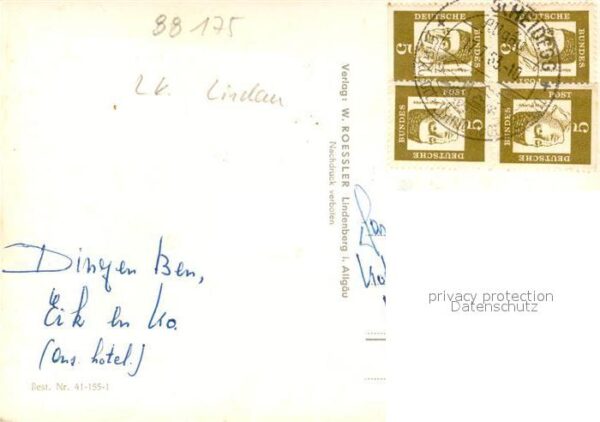 88 175
LK. Lindau
SCHEIDEGG
DEUTSCHE
BUNDES
POST
5
DEUTSCHE
BUNDES
5
BUNDES
POST
5
DEUTSCHE
BUNDES
POST
5
DEUTSCHE
Verlag: W. ROESSLER Lindenberg i. Allgäu
Nachdruck verboten
Ben,
Eik en Ko.
(ons. hotel.)
Best. Nr. 41-155-1
privacy protection
Datenschutz